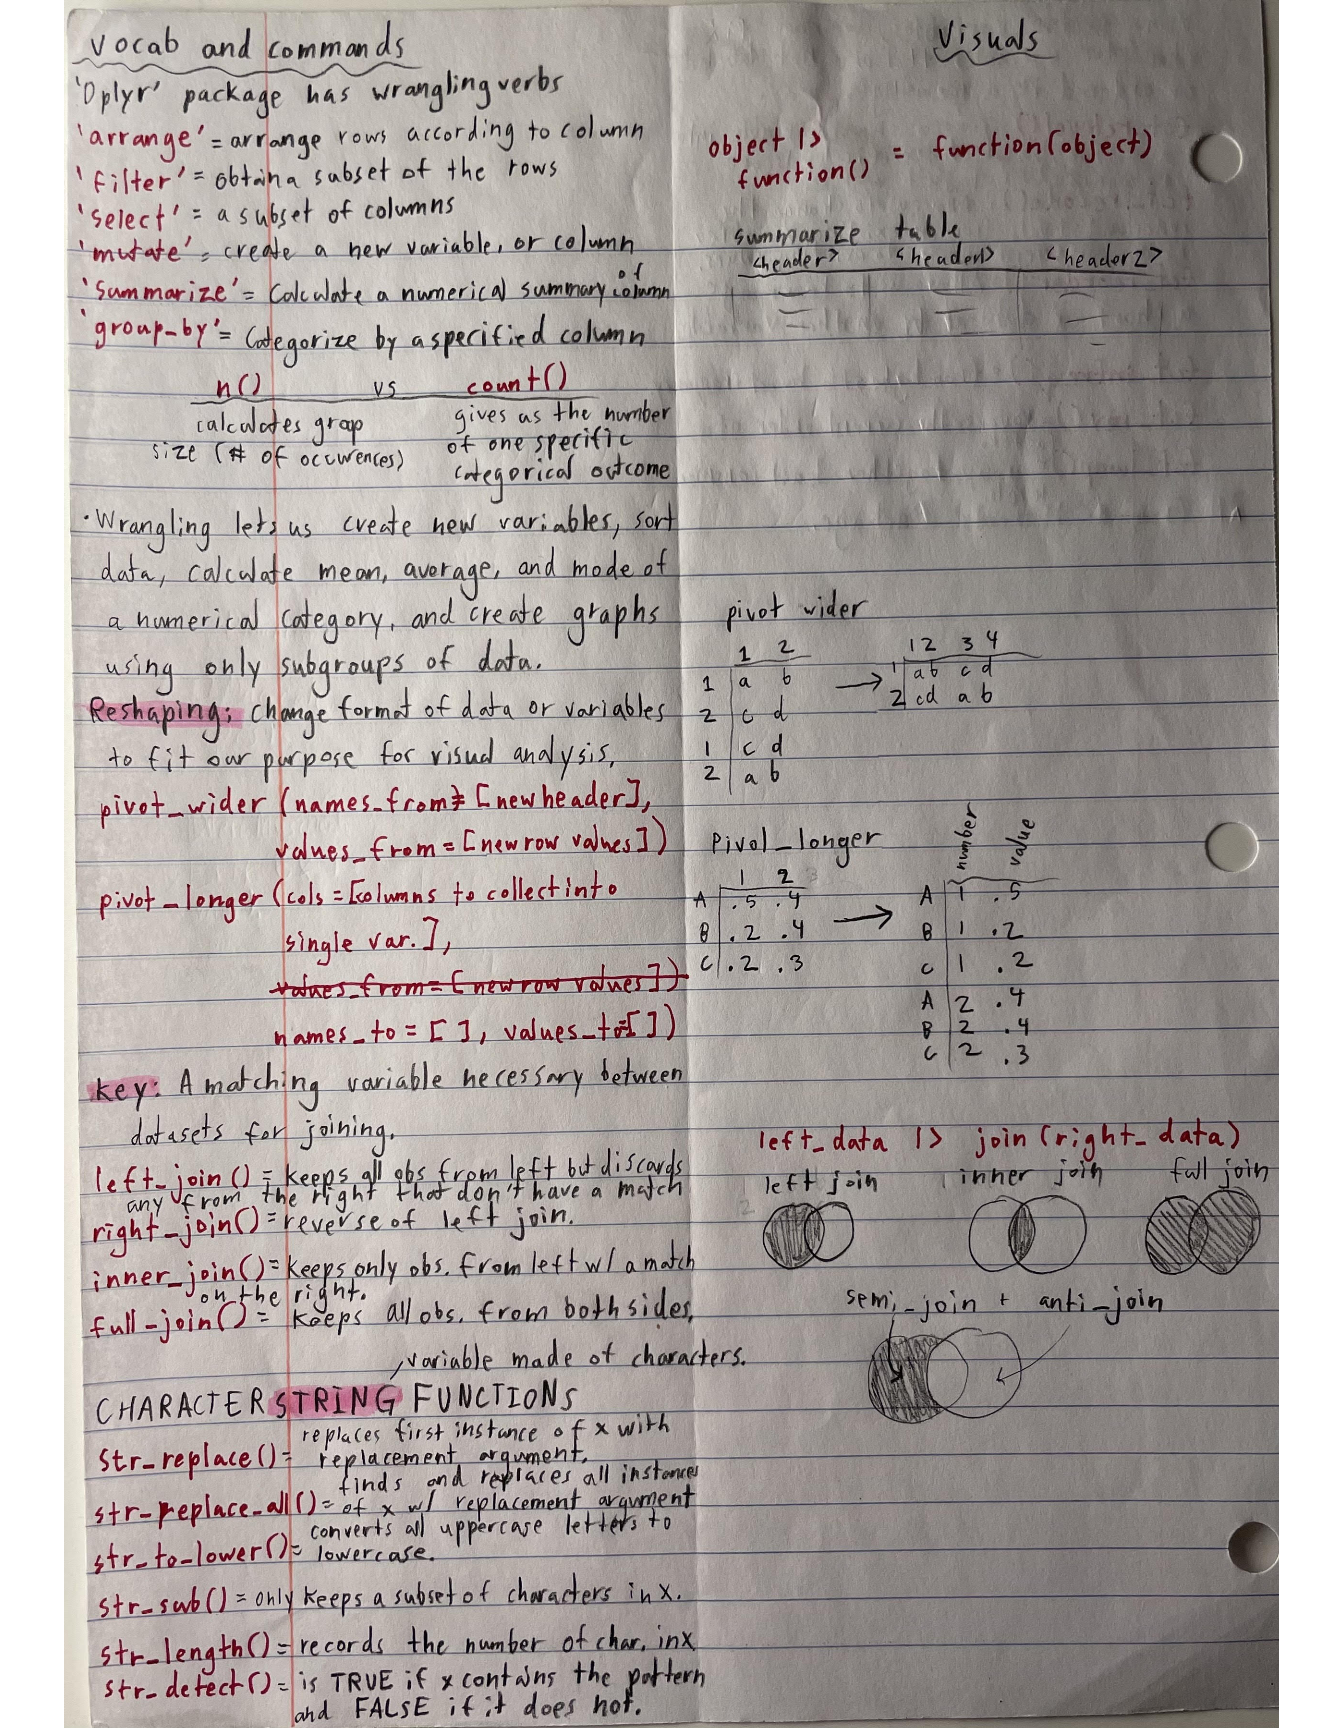 Vocab and commands
'Dplyr' package has wrangling verbs
'arrange' = arrange rows according to column
'filter' = obtain a subset of the rows
'select' = a subset of columns
'mutate' = create a new variable, or column
'summarize' = Calculate a numerical summary of column
'group_by' = Categorize by a specified column
n() vs count()
calculates group
size (# of occurences)
gives us the number
of one specific
categorical outcome
• Wrangling lets us create new variables, sort
data, calculate mean, average, and mode of
a numerical category, and create graphs
using only subgroups of data.
Reshaping: change format of data or variables
to fit our purpose for visual analysis,
pivot_wider (names_from = [new header],
values_from = [new row values])
pivot_longer (cols = [columns to collect into
single var.],
values_from = [new row values])
names_to = [ ], values_to = [ ])
Key: A matching variable necessary between
datasets for joining.
left_join() = keeps all obs from left but discards
any from the right that don't have a match
right_join() = reverse of left join.
inner_join() = keeps only obs. from left w/ a match
on the right.
full_join() = keeps all obs. from both sides,
, variable made of characters.
CHARACTER STRING FUNCTIONS
str_replace() = replaces first instance of x with
replacement argument.
str_replace_all() = finds and replaces all instances
of x w/ replacement argument
str_to_lower() = converts all uppercase letters to
lowercase.
str_sub() = only keeps a subset of characters in x.
str_length() = records the number of char. in x
str_detect() = is TRUE if x contains the pattern
and FALSE if it does not.
Visuals
object |>
function() = function(object)
summarize table
<header> <header1> <header2>
pivot wider
1 2
1 a b
2 c d
1 c d
2 a b
1 2 3 4
1 a b c d
2 c d a b
Pivot_longer
1 2
A .5 .4
B .2 .4
C .2 .3
number value
A 1 .5
B 1 .2
C 1 .2
A 2 .4
B 2 .4
C 2 .3
left_data |> join (right_data)
left join inner join full join
semi_join + anti_join